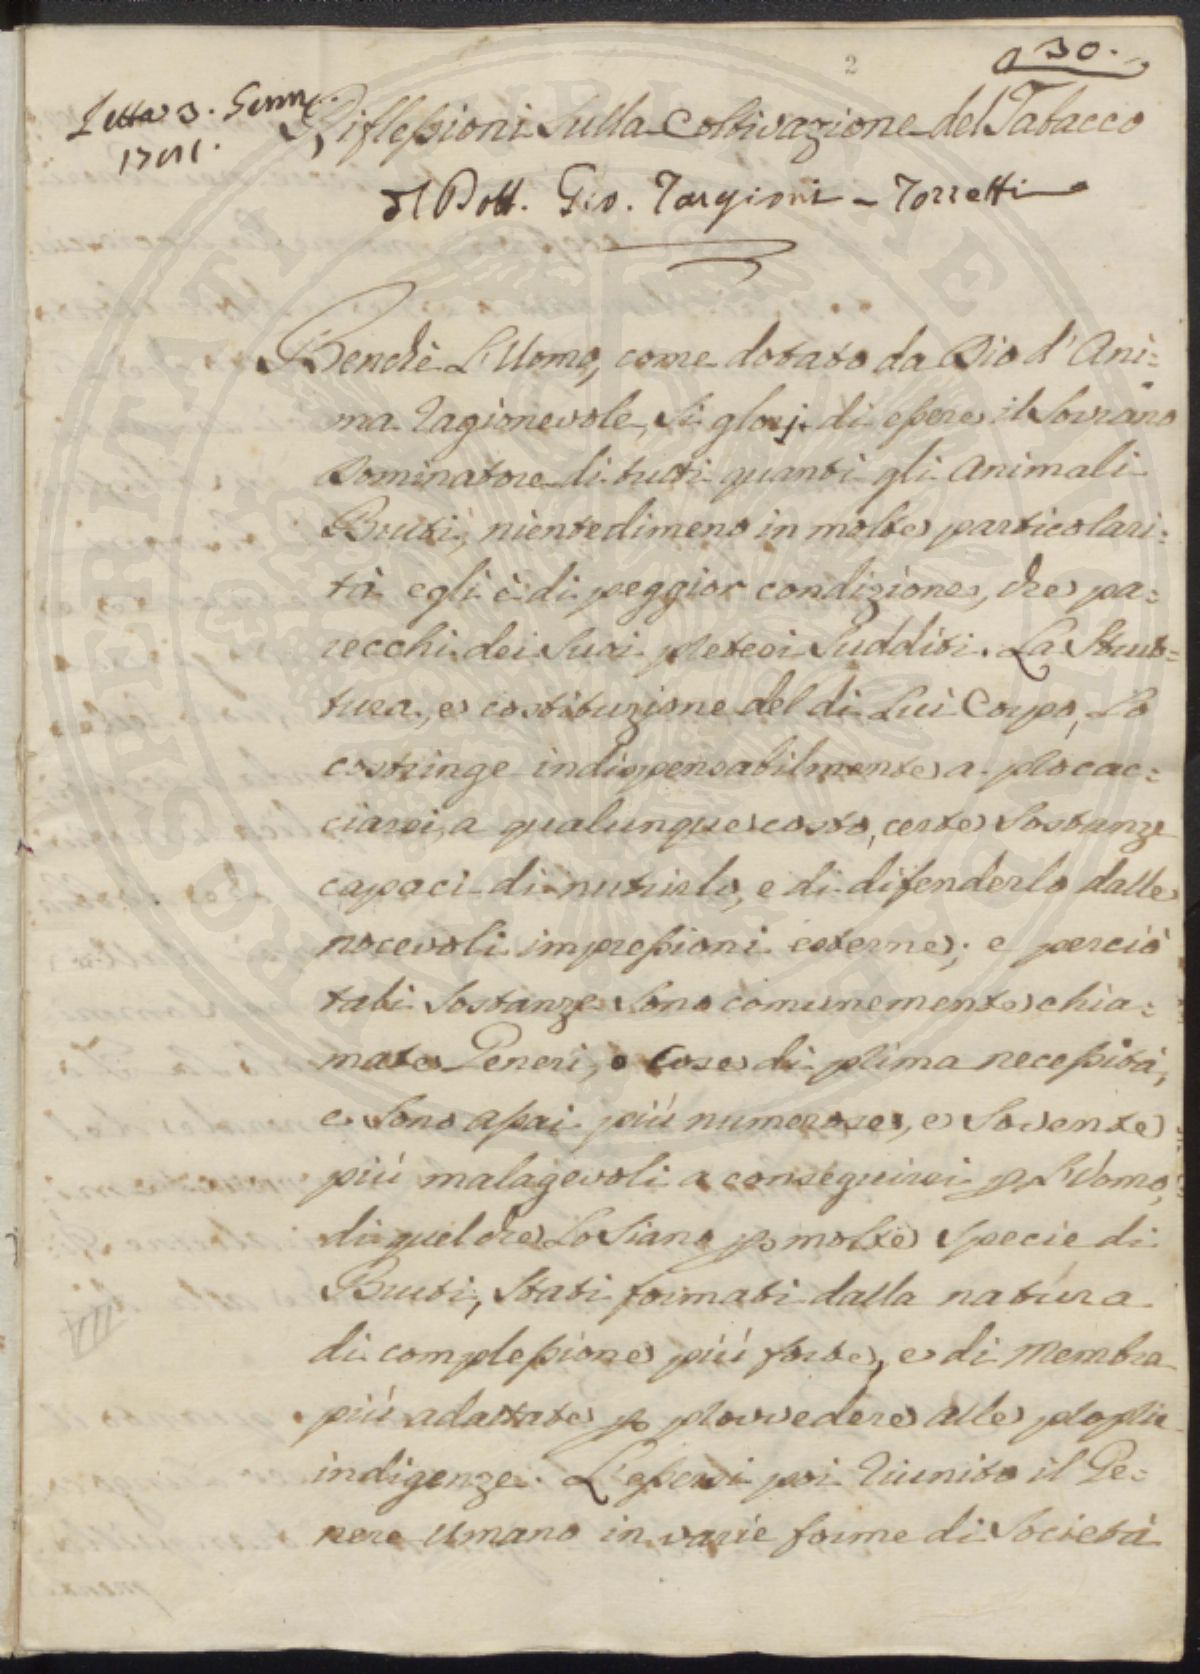 2
30.
Letta 3. Genn.
Riflessioni Sulla Coltivazione del Tabacco
del Dott. Gio. Targioni - Tozzetti
Benchè L'Uomo, come dotato da Dio d'Ani=
ma ragionevole, si glorj di essere il Sovrano
Dominatore di tutti quanti gli Animali
Bruti, nientedimeno in molte particolari=
tà egli è di peggior condizione, che pa=
recchi dei Suoi pretesi Sudditi. La Strut=
tura, e costituzione del di Lui Corpo, Lo
costringe indispensabilmente a procac=
ciarsi, a qualunque costo, certe Sostanze
capaci di nutrirlo, e di difenderlo dalle
nocevoli impressioni esterne; e perciò
tali Sostanze Sono comunemente chia=
mate Generi, o Cose di prima necessità,
e Sono assai più numerose, e Sovente
più malagevoli a conseguirsi p L'Uomo,
di quel che Lo Siano p molte Specie di
Bruti, Stati formati dalla natura
di complessione più forte, e di Membra
più adattate p provvedere alle proprie
indigenze. L'essersi poi riunito il Ge=
nere Umano in varie forme di Società
PROSPERITATI PUBLICAE AUGENDAE